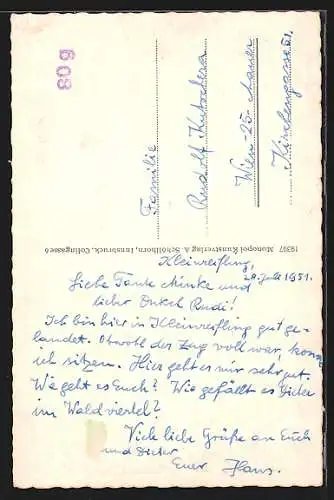 Kleinreifling,
28. Juli 1951.
Liebe Tante Minke und
lieber Onkel Rudi!
Ich bin hier in Kleinreifling gut ge-
landet. Obwohl der Zug voll war, konnte
ich sitzen. Hier geht es mir sehr gut.
Wie geht es Euch? Wie gefällt es Dieter
im Waldviertel?
Viele liebe Grüße an Euch
und Dieter
Euer Hans.
Familie
Rudolf Kutschera
Wien-25-Mauer
Kirchengasse 51.
19397 Monopol Kunstverlag A. Schöllhorn, Innsbruck, Collingasse 6
809